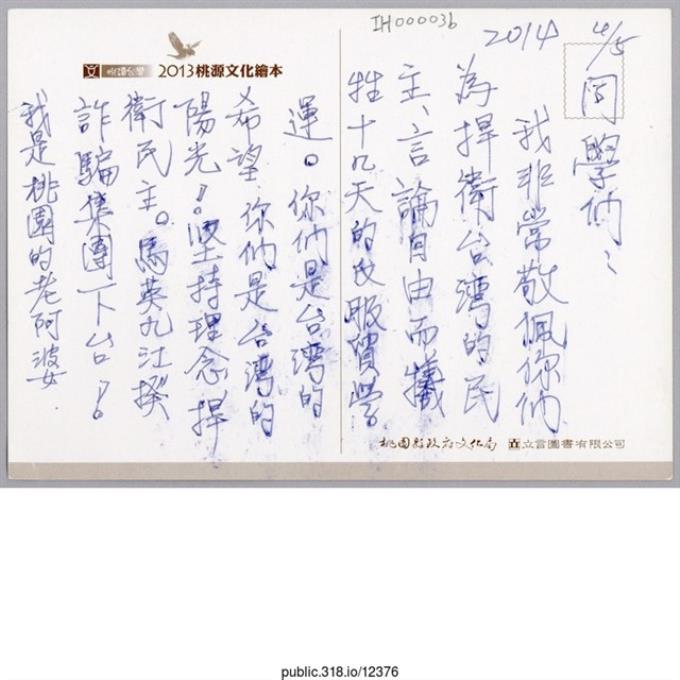 IH000036
2013桃源文化繪本
2014 4/5
同學們：
我非常敬佩你們
為捍衛台灣的民
主、言論自由而犧
牲十九天的反服貿學
運。你們是台灣的
希望、你們是台灣的
陽光！。坚持理念捍
衛民主。馬英九江揆
詐騙集團下台！
我是桃園的老阿婆
桃園縣政府文化局 立言圖書有限公司
public.318.io/12376